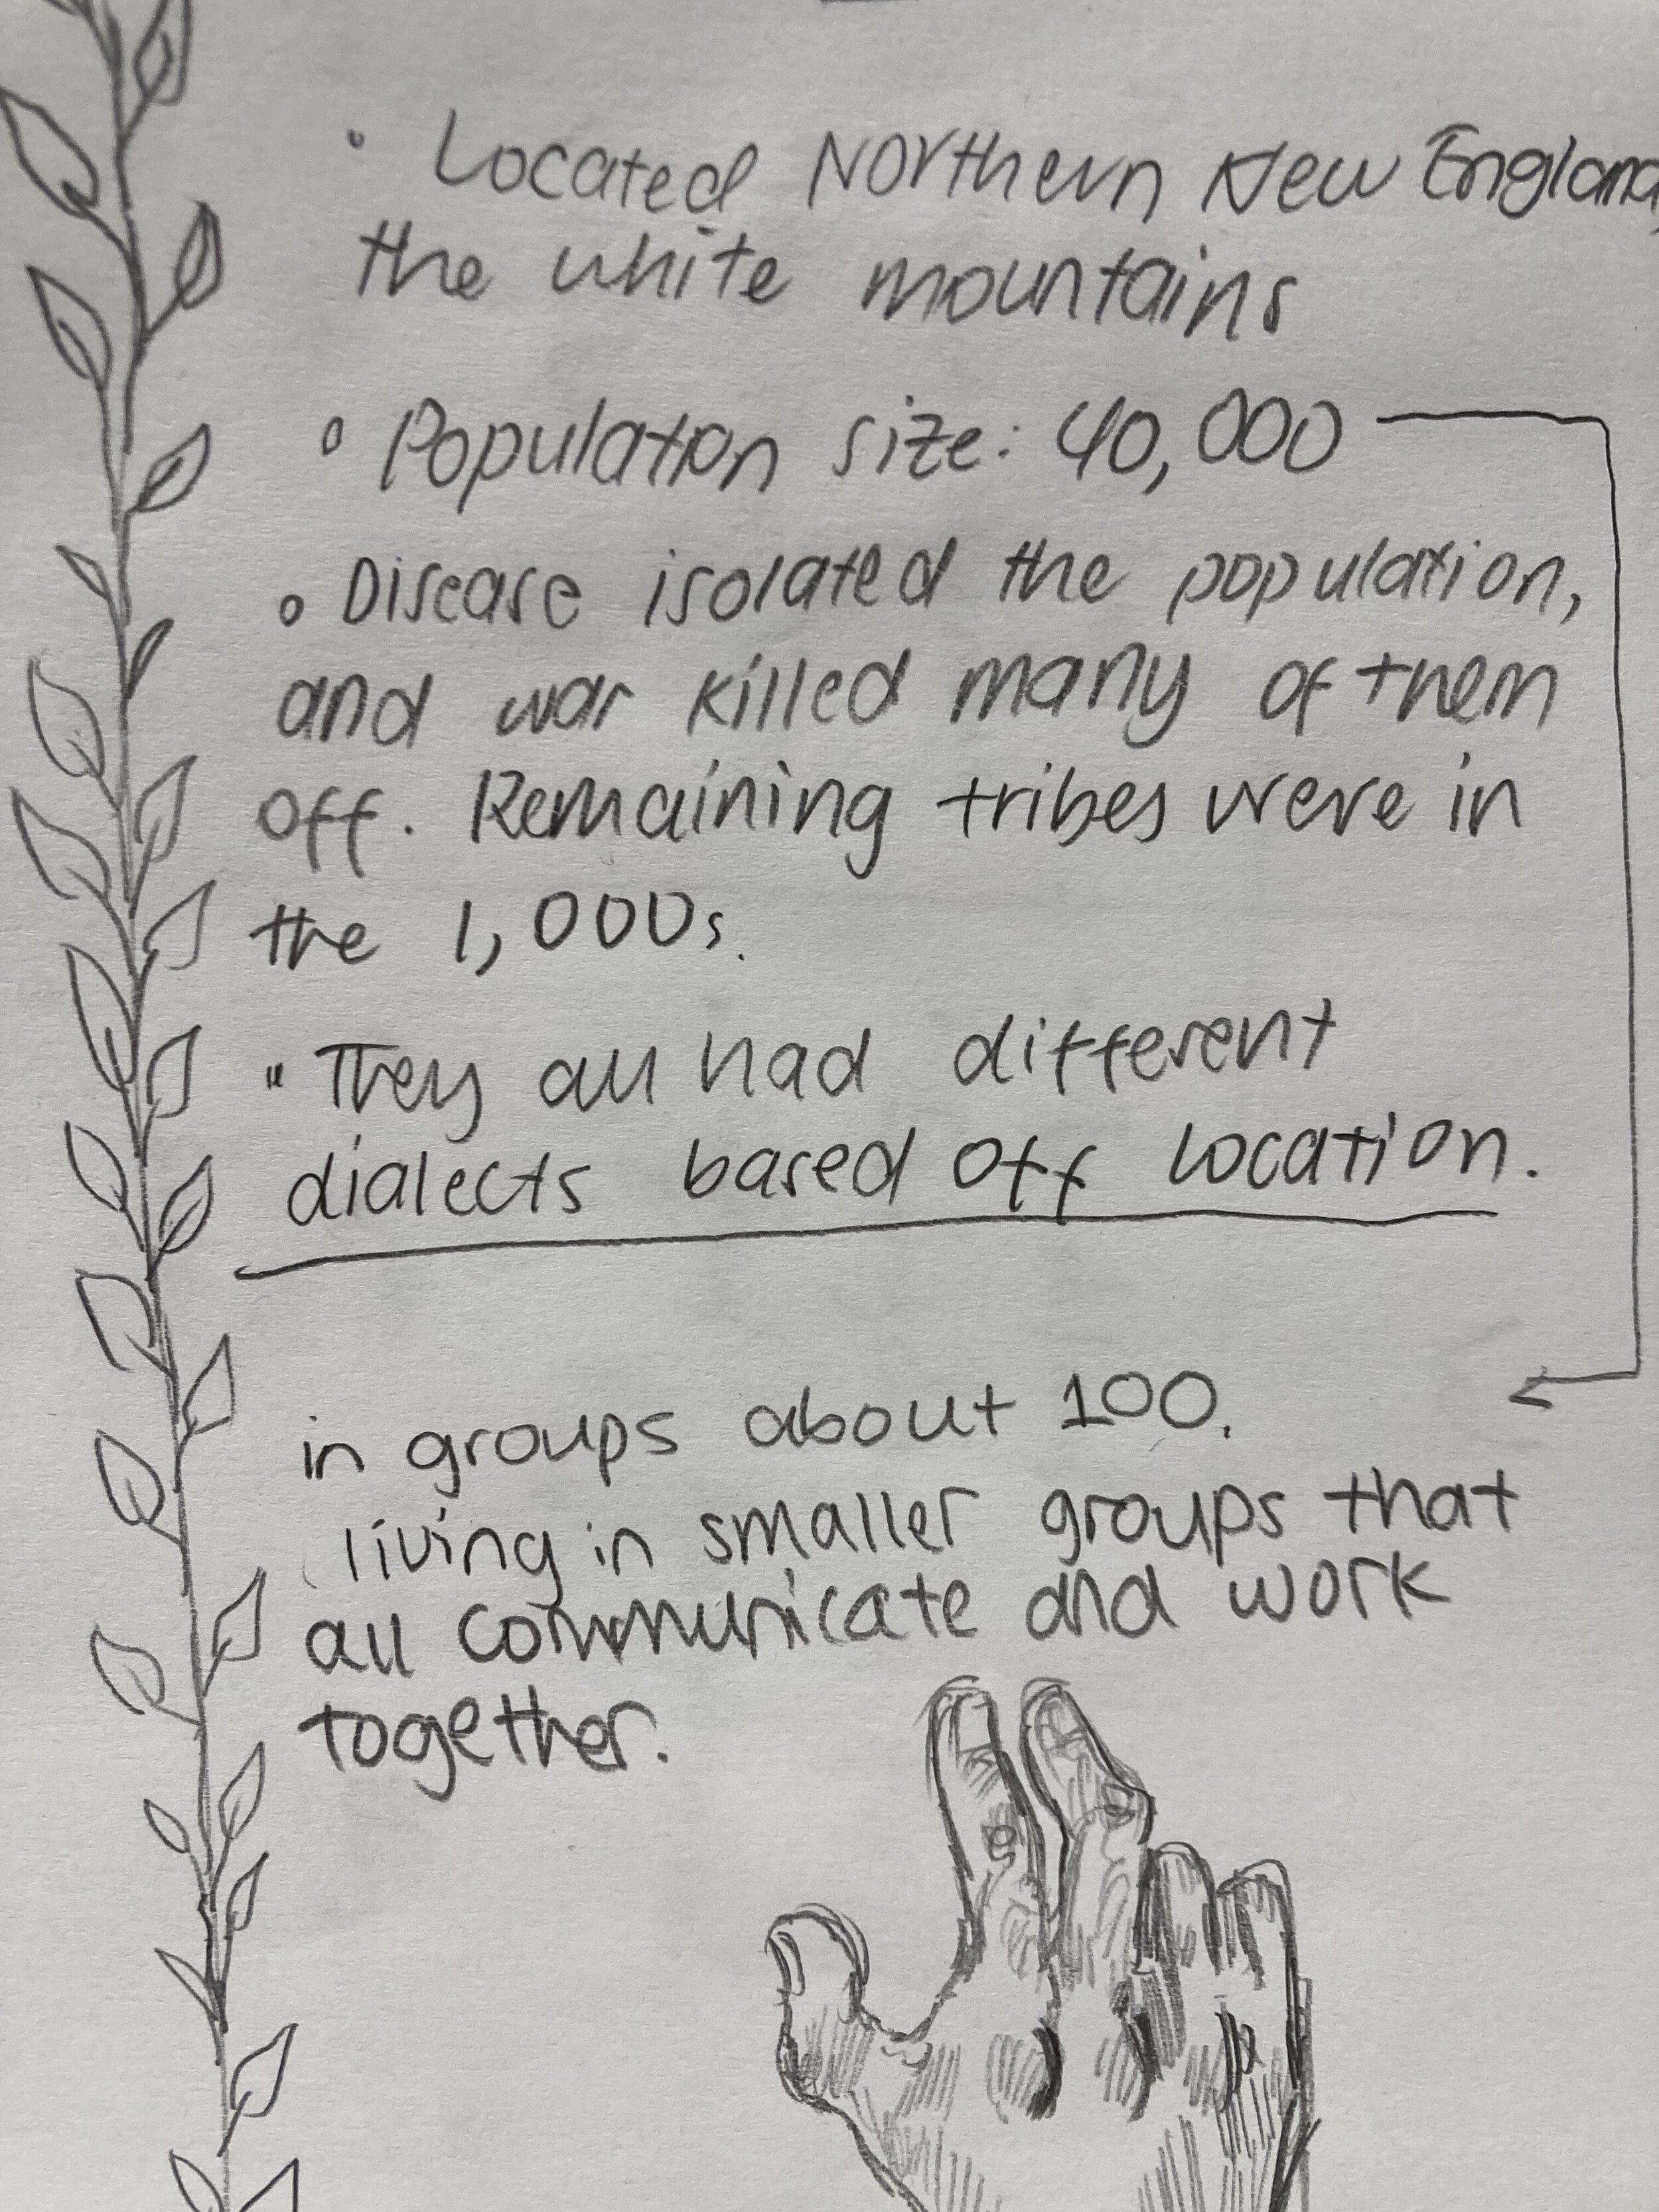 • Located Northern New England,
the white mountains
• Population size: 40,000
• Disease isolated the population,
and war killed many of them
off. Remaining tribes were in
the 1,000s.
" They all had different
dialects based off location.
in groups about 100.
living in smaller groups that
all communicate and work
together.